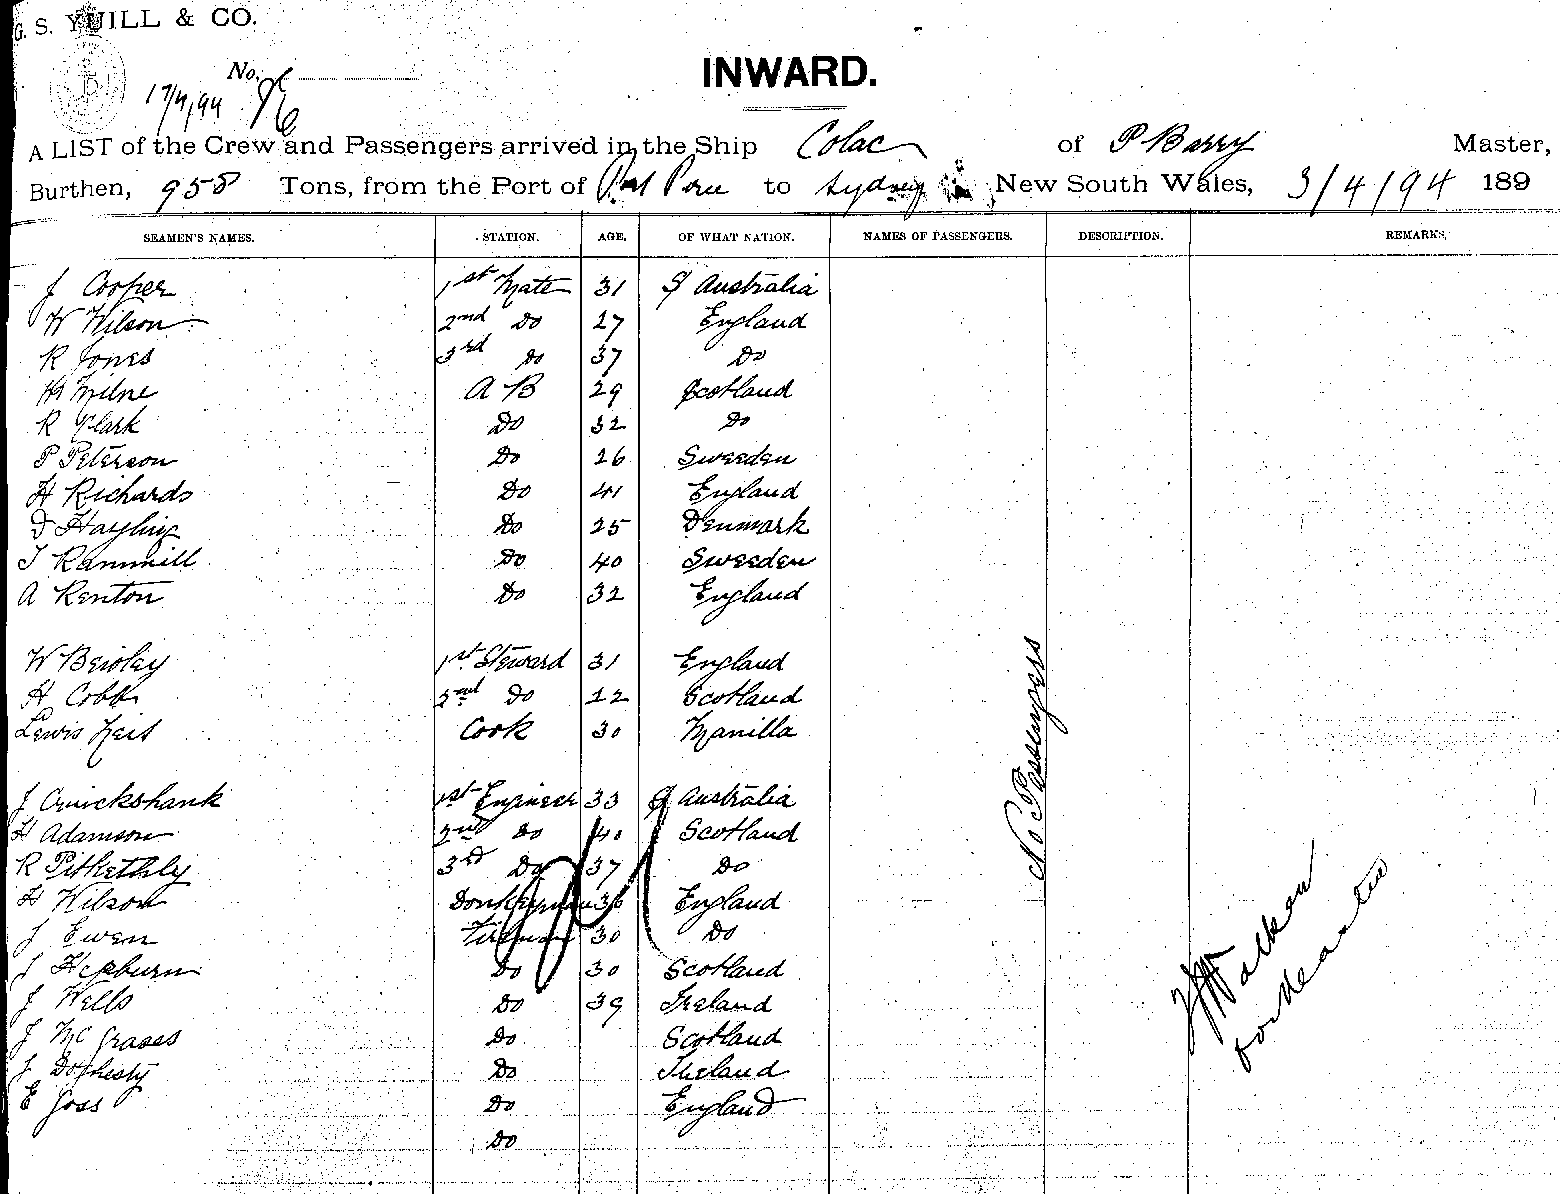 G. S. YUILL & CO.
No.
INWARD.
A LIST of the Crew and Passengers arrived in the Ship Colac of P Barry Master,
Burthen, 958 Tons, from the Port of Port Pirie to Sydney New South Wales, 3/4/94 189
SEAMEN'S NAMES. STATION. AGE. OF WHAT NATION. NAMES OF PASSENGERS. DESCRIPTION. REMARKS.
J Cooper 1st Mate 31 S Australia
W Wilson 2nd Do 27 England
R Jones 3rd Do 37 Do
Milne A B 29 Scotland
R Clark Do 32 Do
P Peterson Do 26 Sweeden
H Richards Do 41 England
Hayling Do 25 Denmark
Rammill Do 40 Sweeden
A Renton Do 32 England
W Bewley 1st Steward 31 England
H Cobb 2nd Do 22 Scotland
Lewis Cook 30 Manilla
J Cruickshank 1st Engineer 33 S Australia
H Adamson 2nd Do 40 Scotland
R Pitkethly 3rd Do 37 Do
H Wilson Donkeyman 36 England
J Ewen Fireman 30 Do
J Hepburn Do 30 Scotland
J Wells Do 39 Ireland
J Do Scotland
J Do Ireland
E Goss Do England
Do
No Passengers
Walker